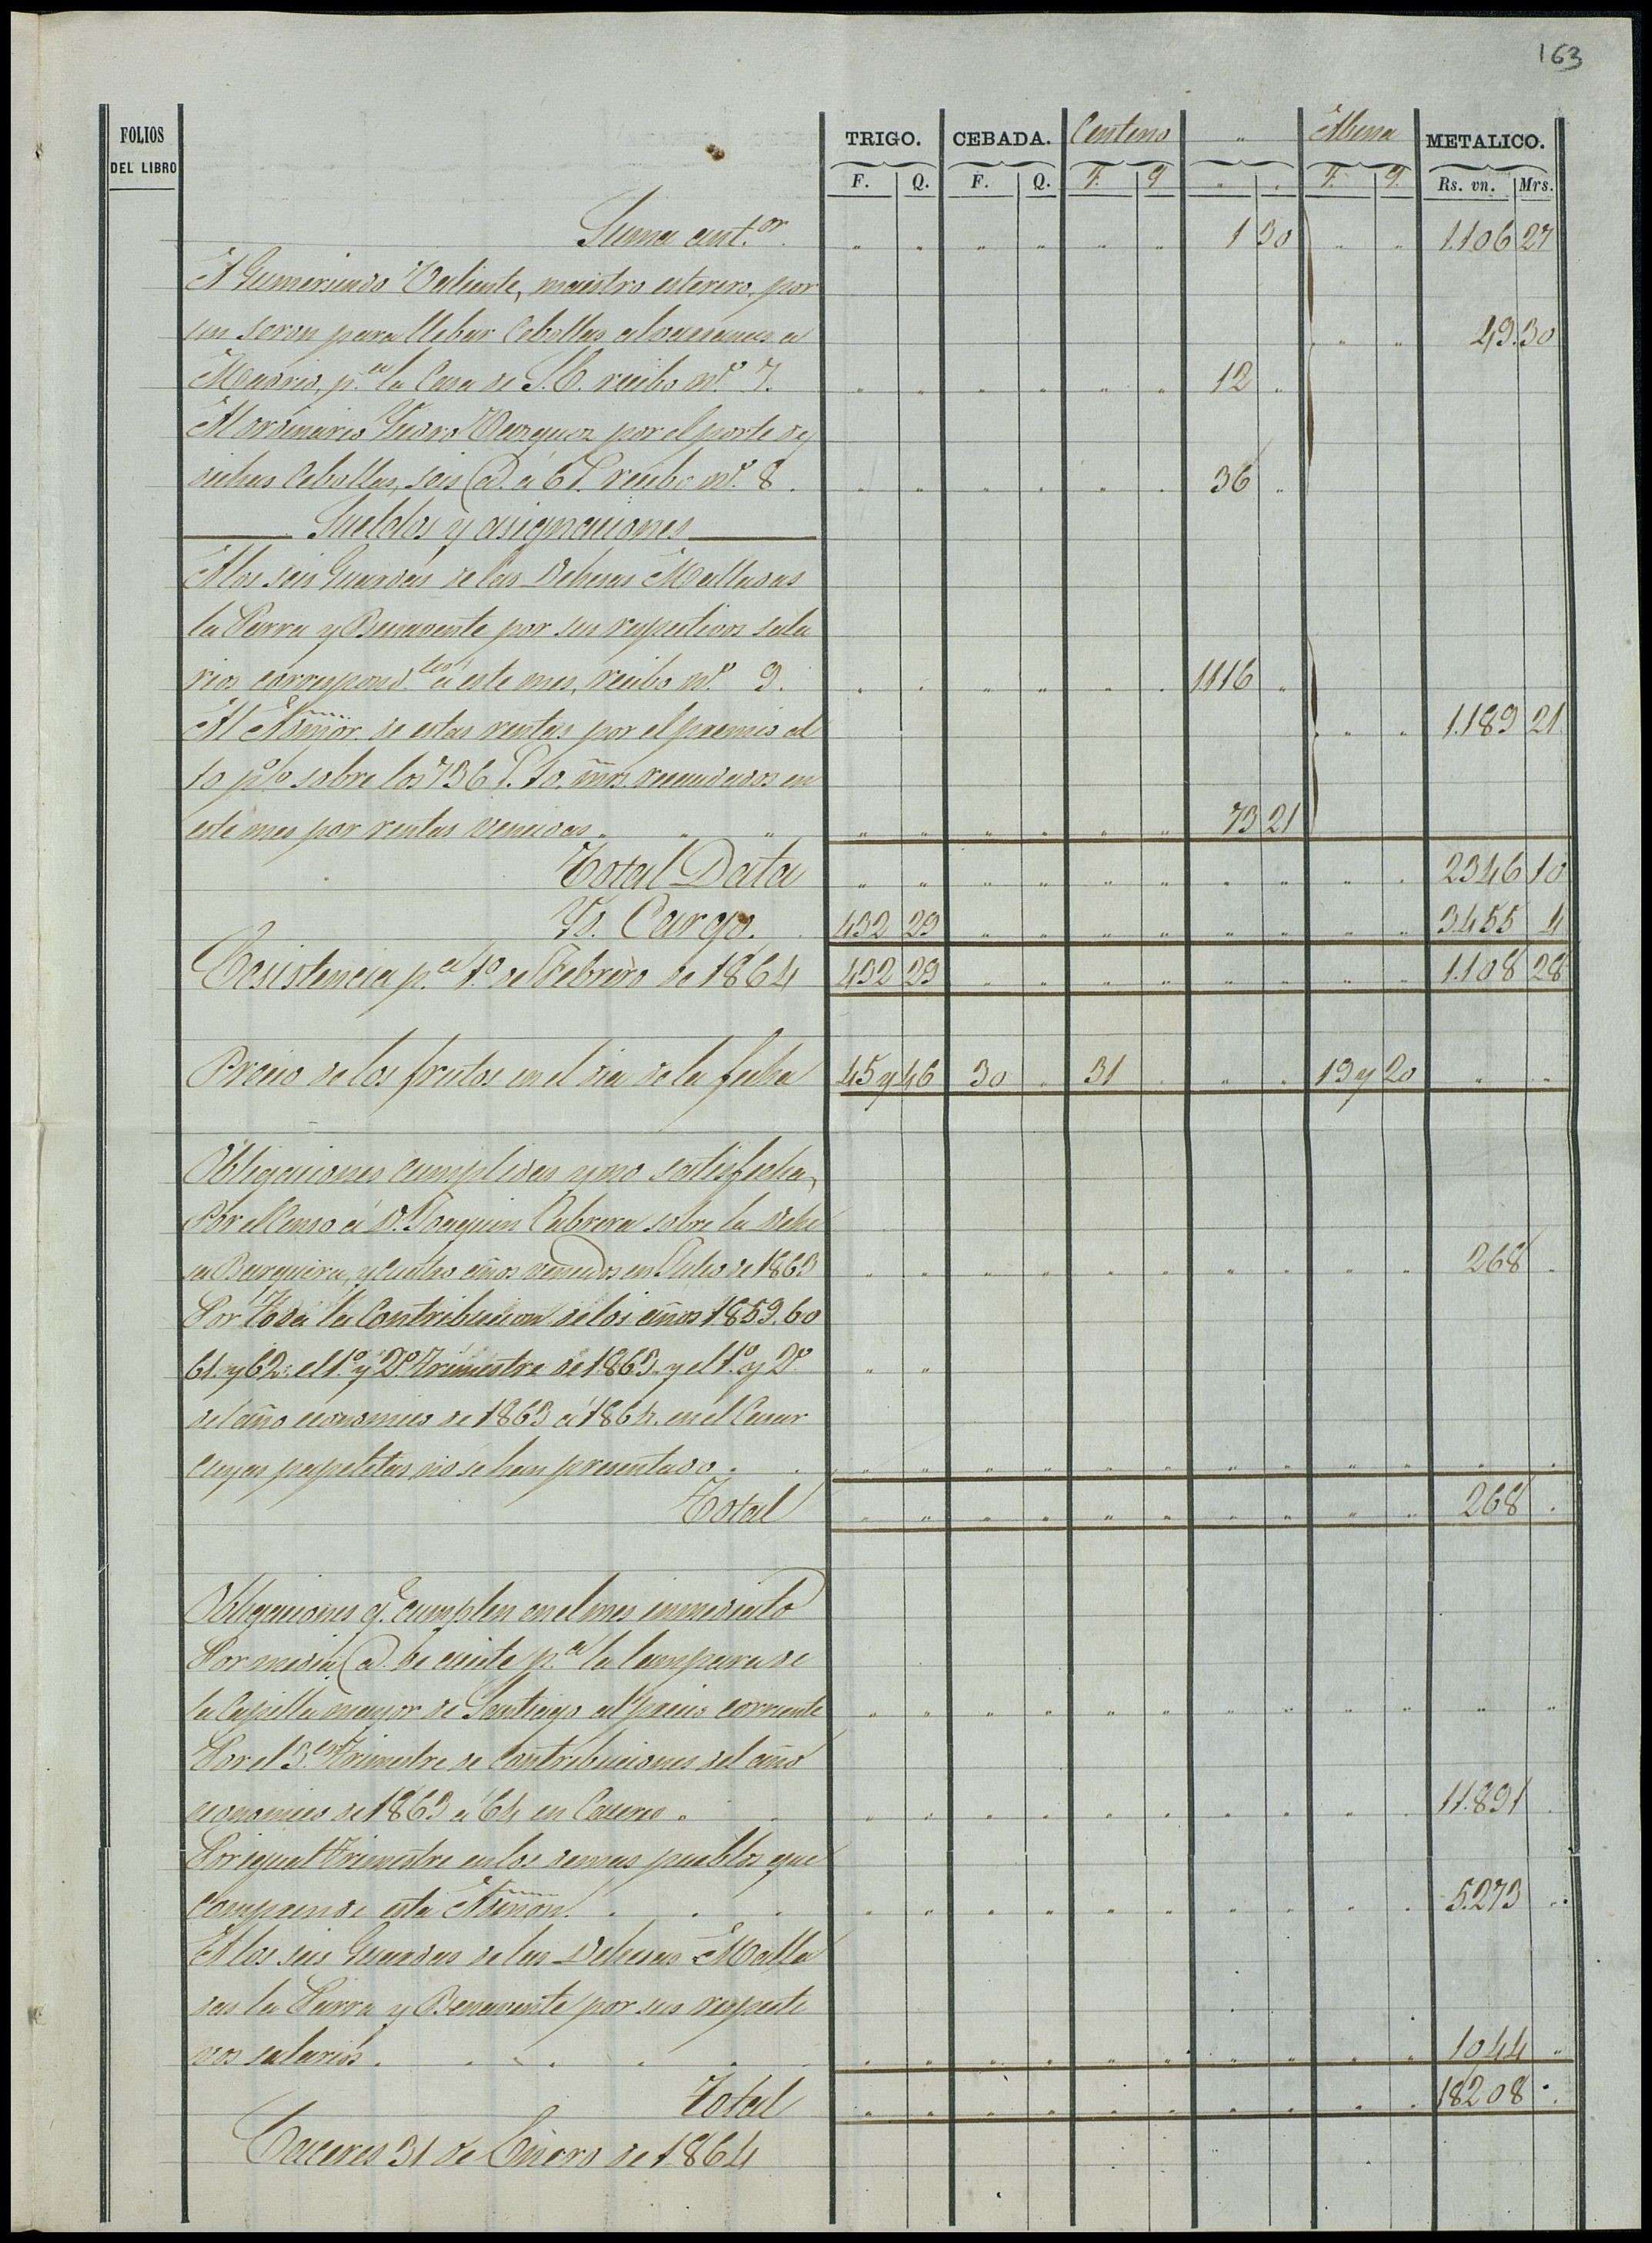 163
FOLIOS DEL LIBRO
TRIGO. CEBADA. Centeno " Abena METALICO.
F. Q. F. Q. F. Q " " F. Q. Rs. vn. Mrs.
Suma ant.or " " " " " " 1 30 " " 1.106 27
A Gumersindo Valiente, maestro esterero, por
un seron para llebar Cebollas albarranas a " " 49. 30
Madrid, p.a la Casa de S.E. recibo n.o 7. " " " " " " 12 "
Al ordinario Pedro Vazquez por el porte de
dichas Cebollas, seis @. á 6 r.s recibo n.o 8. " " " " " " 36 "
Sueldos y asignaciones
A los seis Guardas de las Dehesas Malladas
la Parra y Benavente por sus respectivos sala
rios correspond.tes á este mes, recibo n.o 9. " " " " " " 1116 "
Al Admor. de estas rentas por el premio al " " 1.189 21
10 p% sobre los 736 r.s 10. mrs recaudados en
este mes por rentas vencidas. " " " " " " " " 73 21
Total Data " " " " " " " " " " 2346 10
Yd. Cargo. 432 29 " " " " " " " " 3455 4
Ecsistencia p.a 1.o de Febrero de 1864 432 29 " " " " " " " " 1.108 28
Precio de los frutos en el dia de la fecha 45 y 46 30 " 31 " " " 19 y 20 " "
Obligaciones cumplidas y no satisfechas,
Por el Censo á D. Joaquin Cabrera sobre la Dehe
sa y cuatro años vencidos en Julio de 1863 " " " " " " " " " " 268 "
Por toda la Contribucion de los años 1859. 60
61. y 62: el 1.o y 2.o trimestre de 1863. y el 1.o y 2.o " "
del año economico de 1863 á 1864. en el Casar
cuyas papeletas no se han presentado. " " " " " " " " " " " "
Total " " " " " " " " " " 268 "
Obligaciones q.e cumplen en el mes inmediato
Por media @. de aceite p.a la lampara de
la Capilla mayor de Santiago al precio corriente " " " " " " " " " " " "
Por el 3.er trimestre de Contribuciones del año
economico de 1863 á 64 en Caceres. " " " " " " " " " " 11.891 "
Por igual trimestre en los demas pueblos que
comprende esta Admon. " " " " " " " " " " 5.273 "
A los seis Guardas de las Dehesas Malla
das la Parra y Benavente por sus respecti
vos salarios. " " " " " " " " " " 1044 "
Total " " " " " " " " " " 18208 "
Caceres 31 de Enero de 1864